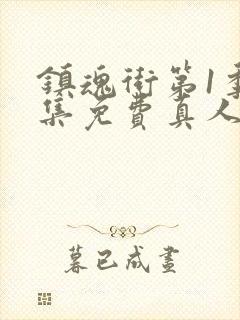 鎮魂街第1季
集免費真人
暮已成畫